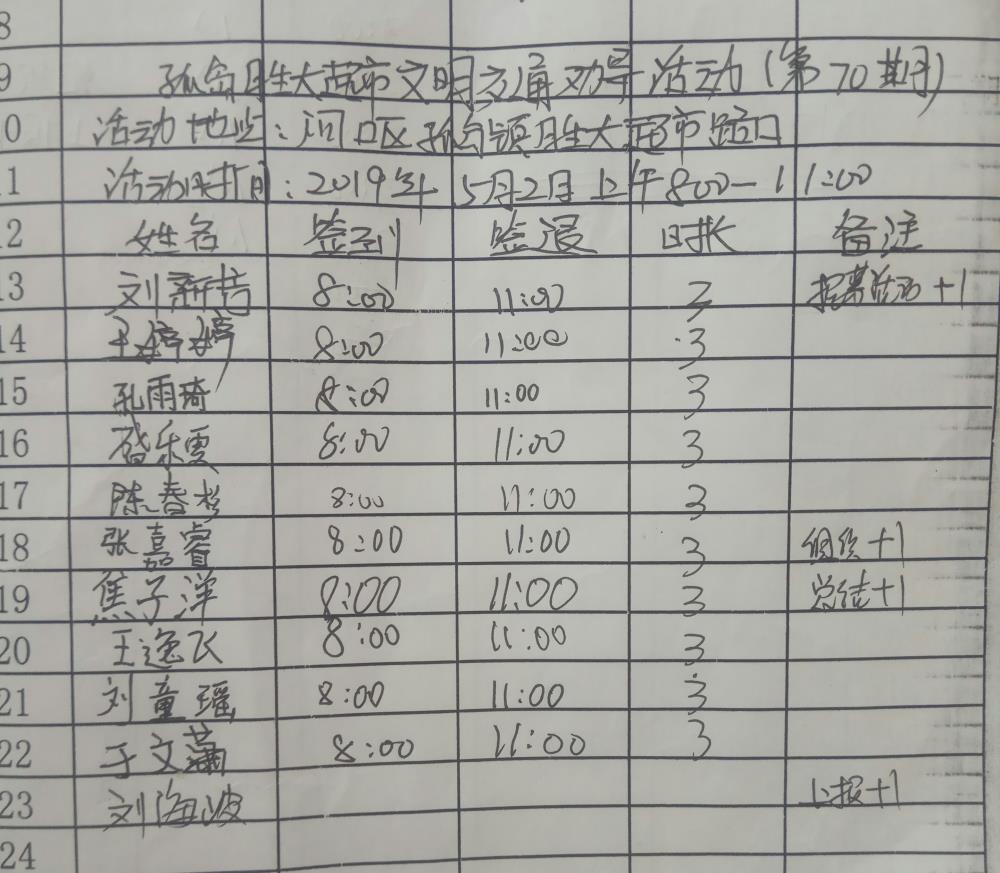 8
9 孤岛胜大超市文明交通劝导活动(第70期)
0 活动地址:河口区孤岛镇胜大超市路口
1 活动时间:2019年5月2日上午800-11:00
2 姓名 签到 签退 时长 备注
13 刘新 8:00 11:00 3 招募活动+1
14 王婷婷 8:00 11:00 3
15 孔雨琦 8:00 11:00 3
16 乐雯 8:00 11:00 3
17 陈春杉 8:00 11:00 3
18 张嘉睿 8:00 11:00 3 组织+1
19 焦子洋 8:00 11:00 3 总结+1
20 王逸飞 8:00 11:00 3
21 刘童瑶 8:00 11:00 3
22 于文潇 8:00 11:00 3
23 刘海波 上报+1
24